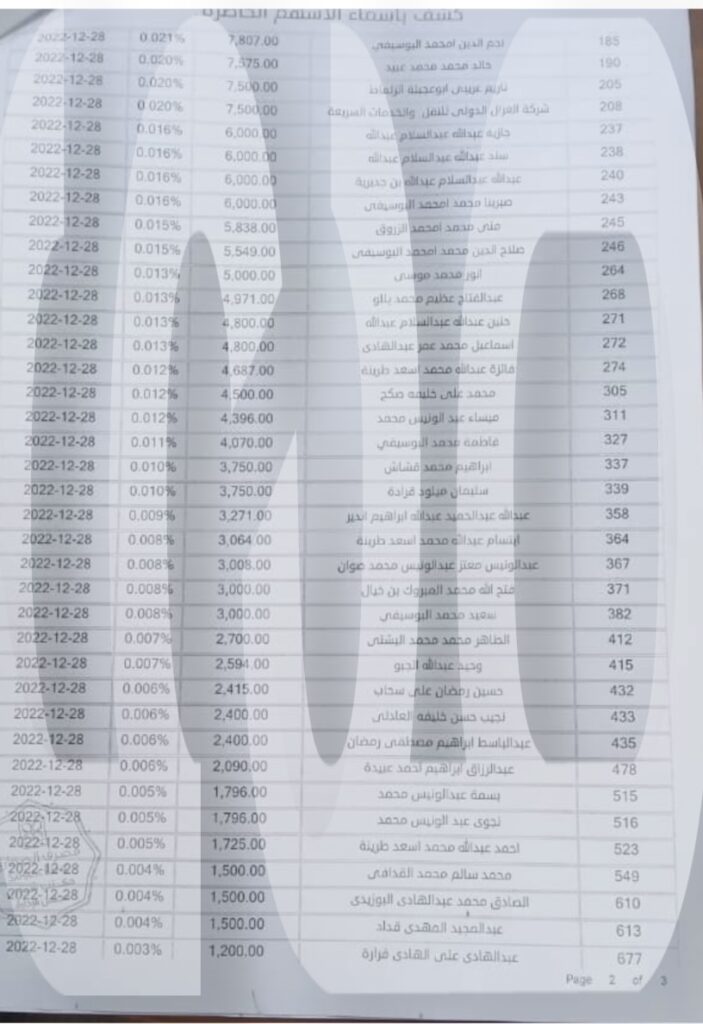 كشف بأسماء الأسهم الحاضرة
185 نجم الدين امحمد البوسيفي 7,807.00 0.021% 2022-12-28
190 خالد محمد محمد عبيد 7,375.00 0.020% 2022-12-28
205 ابوعجيلة 7,500.00 0.020% 2022-12-28
208 شركة الغزال الدولي للنقل والخدمات السريعة 7,500.00 0.020% 2022-12-28
237 عبدالله عبدالسلام عبدالله 6,000.00 0.016% 2022-12-28
238 سند عبدالله عبدالسلام عبدالله 6,000.00 0.016% 2022-12-28
240 عبدالله عبدالسلام عبدالله بن 6,000.00 0.016% 2022-12-28
243 صبرينا محمد امحمد البوسيفي 6,000.00 0.016% 2022-12-28
245 منى محمد امحمد الزروق 5,838.00 0.015% 2022-12-28
246 صلاح الدين محمد امحمد البوسيفي 5,549.00 0.015% 2022-12-28
264 انور محمد موسى 5,000.00 0.013% 2022-12-28
268 عبدالفتاح عظيم محمد بالو 4,971.00 0.013% 2022-12-28
271 حنين عبدالله عبدالسلام عبدالله 4,800.00 0.013% 2022-12-28
272 اسماعيل محمد عمر عبدالهادى 4,800.00 0.013% 2022-12-28
274 فائزة عبدالله محمد اسعد طرينة 4,687.00 0.012% 2022-12-28
305 محمد على خليفه صكح 4,500.00 0.012% 2022-12-28
311 ميساء عبد الونيس محمد 4,396.00 0.012% 2022-12-28
327 فاطمه محمد البوسيفي 4,070.00 0.011% 2022-12-28
337 ابراهيم محمد قشاش 3,750.00 0.010% 2022-12-28
339 سليمان ميلود قرادة 3,750.00 0.010% 2022-12-28
358 عبدالله عبدالحميد عبدالله ابراهيم ابدير 3,271.00 0.009% 2022-12-28
364 ابتسام عبدالله محمد اسعد طرينة 3,064.00 0.008% 2022-12-28
367 عبدالونيس معتز عبدالونيس محمد صوان 3,008.00 0.008% 2022-12-28
371 فتح الله محمد المبروك بن خيال 3,000.00 0.008% 2022-12-28
382 سعيد محمد البوسيفي 3,000.00 0.008% 2022-12-28
412 الطاهر محمد محمد البشتى 2,700.00 0.007% 2022-12-28
415 وحيد عبدالله الجبو 2,594.00 0.007% 2022-12-28
432 حسين رمضان على سحاب 2,415.00 0.006% 2022-12-28
433 نجيب حسن خليفه العادلى 2,400.00 0.006% 2022-12-28
435 عبدالباسط ابراهيم مصطفى رمضان 2,400.00 0.006% 2022-12-28
478 عبدالرزاق ابراهيم احمد عبيدة 2,090.00 0.006% 2022-12-28
515 بسمة عبدالونيس محمد 1,796.00 0.005% 2022-12-28
516 نجوى عبد الونيس محمد 1,796.00 0.005% 2022-12-28
523 احمد عبدالله محمد اسعد طرينة 1,725.00 0.005% 2022-12-28
549 محمد سالم محمد القذافى 1,500.00 0.004% 2022-12-28
610 الصادق محمد عبدالهادى البوزيدى 1,500.00 0.004% 2022-12-28
613 عبدالمجيد المهدى قداد 1,500.00 0.004% 2022-12-28
677 عبدالهادى على الهادى فرارة 1,200.00 0.003% 2022-12-28
Page 2 of 3